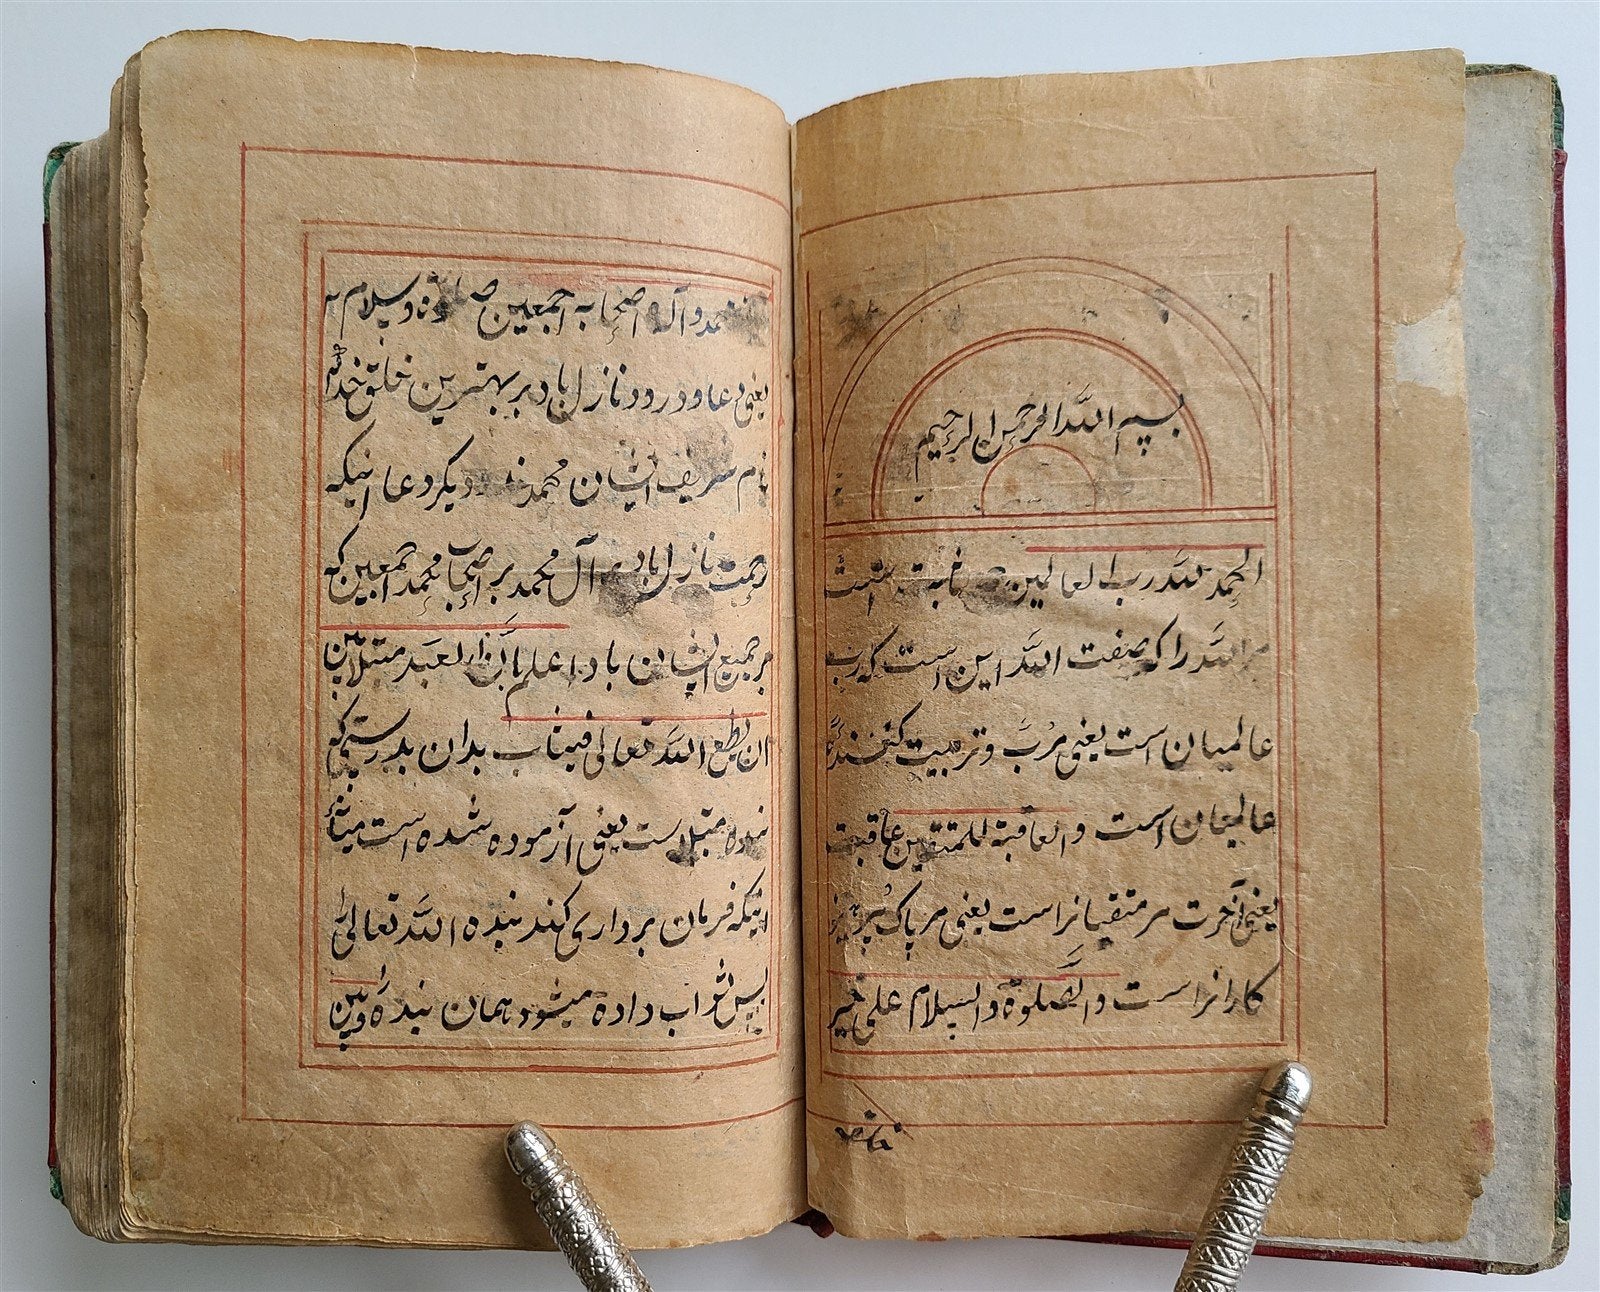 بسم الله الرحمن الرحیم
الحمد لله رب العالمین ثابت است
مر الله را که صفت الله این است که رب
عالمیان است یعنی مرب و تربیت کننده
عالمیان است والعاقبة للمتقین عاقبت
یعنی آخرت مر متقیانراست یعنی مر پاک پرهیز
کارانراست والصلوة والسلام علی خیر
محمد وآله اصحابه اجمعین وسلام
یعنی دعا و درود نازل باد بر بهترین خلق خدا
نام شریف ایشان محمد دیکر دعا اینکه
رحمت نازل باد بر آل محمد بر اصحاب محمد اجمعین که
بر جمیع ایشان باد اعلم بان العبد مبتلا بین
ان یطیع الله تعالی فیثاب بدان بدرستیکه
بنده مبتلاست یعنی آزموده شده است میان
اینکه فرمان برداری کند بنده الله تعالی را
پس ثواب داده میشود همان بنده وبین